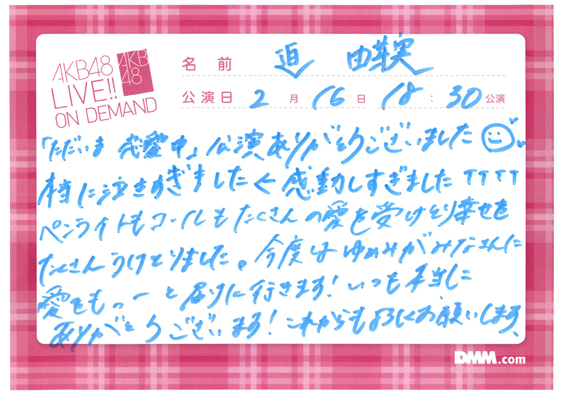 AKB48
LIVE!!
ON DEMAND
AKB
48
名前 迫 由芽実
公演日 2月16日 18:30公演
「ただいま 恋愛中」公演ありがとうございました
本当に泣きすぎました< 感動しすぎました TTTT
ペンライトもコールもたくさんの愛を受けとり幸せを
たくさんうけとりました。今度はゆめみがみなさんに
愛をもっーと届けに行きます!いつも本当に
ありがとうございます!これからもよろしくお願いします、
DMM.com